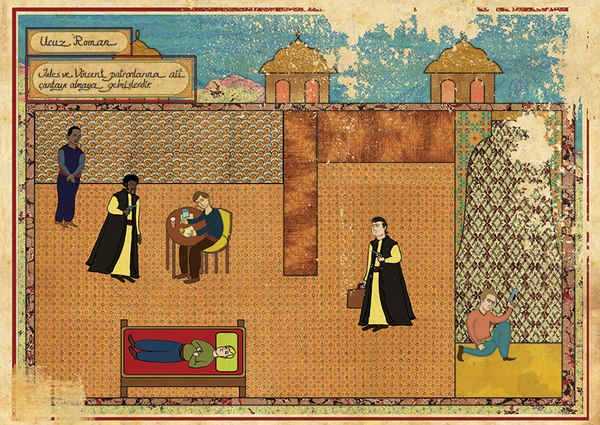 Ucuz Roman
Jules ve Vincent patronlarına ait
çantayı almaya gelmişlerdir.